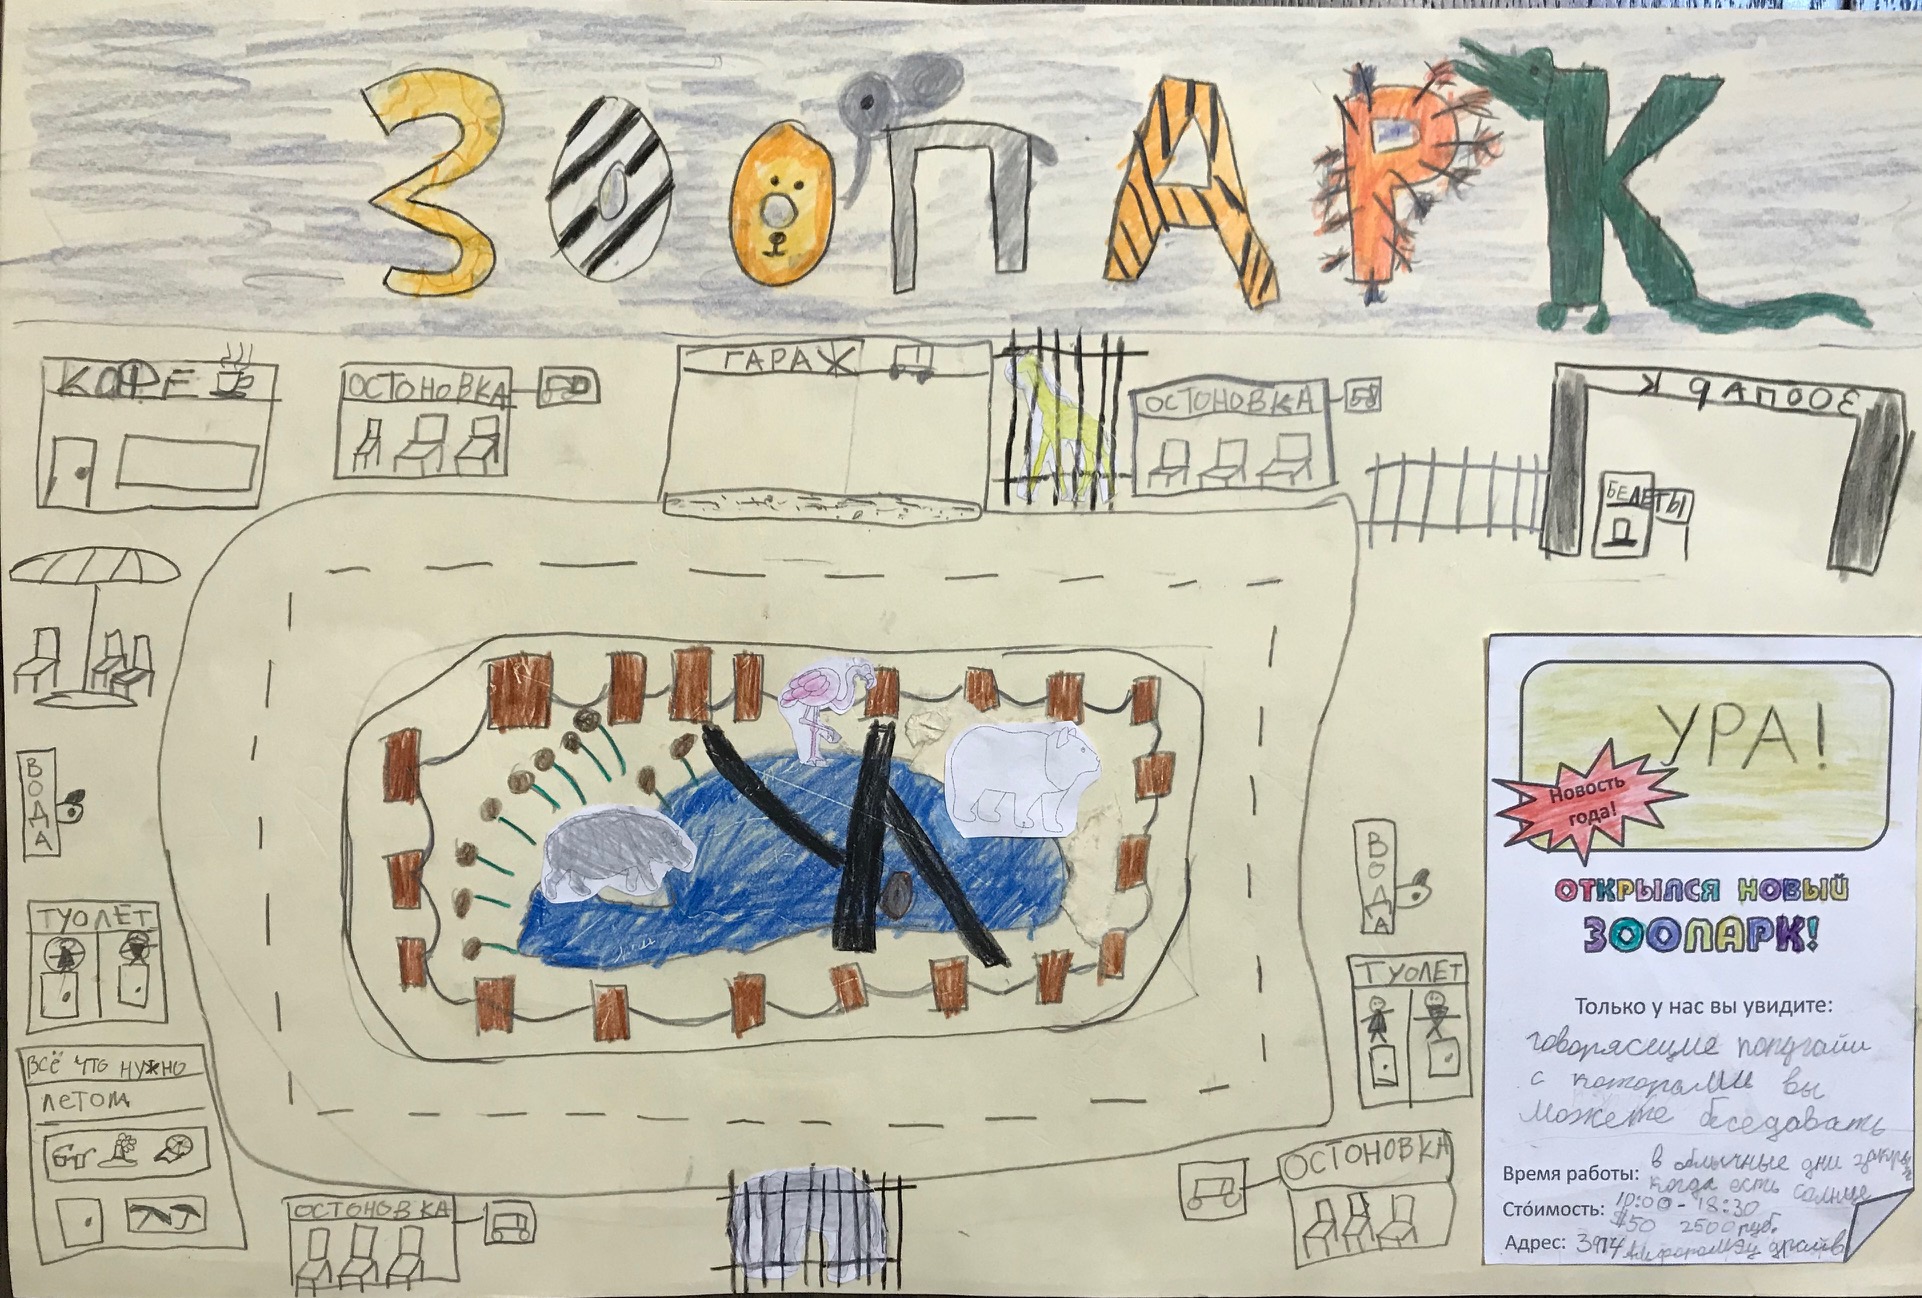 ЗООПАРК
КОФЕ
ОСТОНОВКА
ГАРАЖ
ОСТОНОВКА
ЗООПАРК
БЕЛЕТЫ
ВОДА
ТУОЛЕТ
ВСЁ ЧТО НУЖНО
ЛЕТОМ
ОСТОНОВКА
ВОДА
ТУОЛЕТ
ОСТОНОВКА
УРА!
Новость
года!
ОТКРЫЛСЯ НОВЫЙ
ЗООПАРК!
Только у нас вы увидите:
говорясщие попугаи
с которами вы
можете беседавать
Время работы: в обычные дни
когда есть солнце
10:00 - 18:30
Сто́имость: $50 2500 руб.
Адрес: 3974 драйв